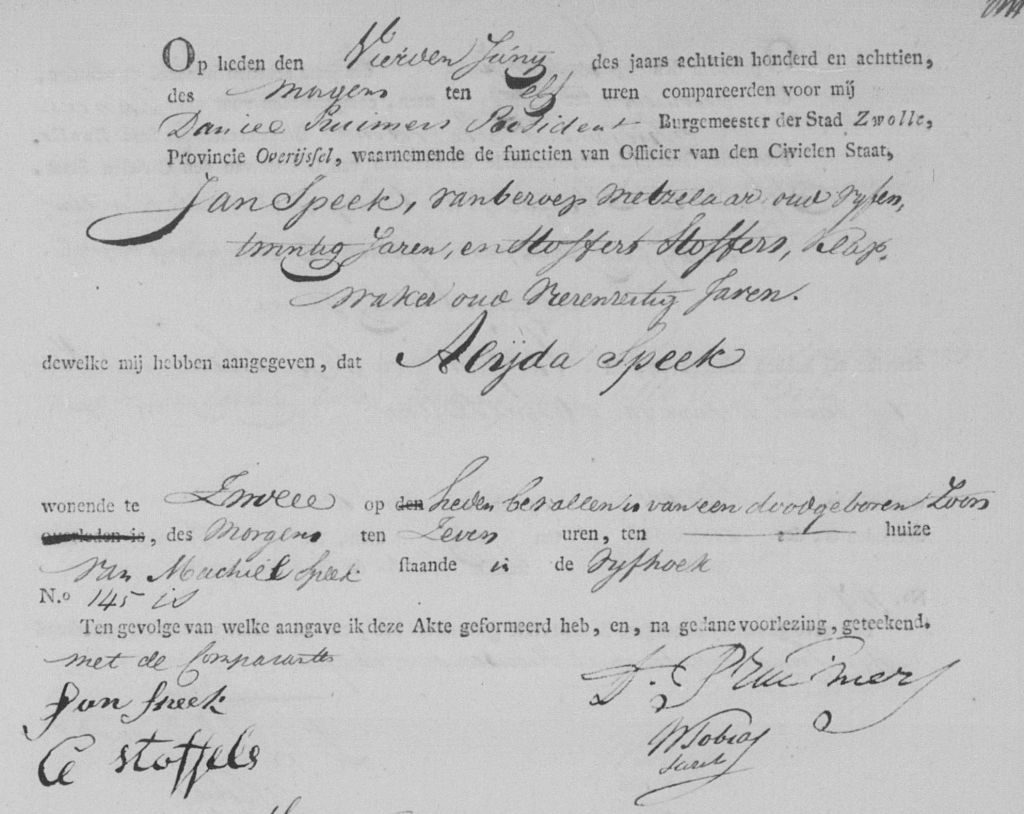 Op heden den Vierden Junij des jaars achttien honderd en achttien,
des morgens ten elf uren compareerden voor mij
Daniel Pruimers President Burgemeester der Stad Zwolle,
Provincie Overijssel, waarnemende de functien van Officier van den Civielen Staat,
Jan Speek, van beroep Metzelaar oud vyfen,
twintig Jaren, en Stoffert Stoffers, Klap,
waker oud Vierenveertig Jaren.
dewelke mij hebben aangegeven, dat Alyda Speek
wonende te Zwolle op den heden bevallen is van een doodgeboren Zoon
overleden is, des Morgens ten Zeven uren, ten huize
van Machiel Speek staande in de Vyfhoek
N.o 145 is
Ten gevolge van welke aangave ik deze Akte geformeerd heb, en, na gedane voorlezing, geteekend.
met de Comparanten
Jan Speek
D. Pruimers
W Tobias
Secret
C stoffels